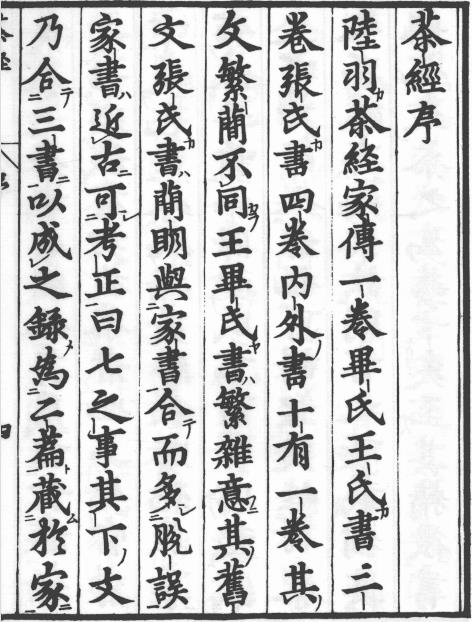 茶經序
陸羽茶經家傳一卷畢氏王氏書三
卷張氏書四卷內外書十有一卷其
文繁簡不同王畢氏書繁雜意其舊
文張氏書簡明與家書合而多脫誤
家書近古可考正曰七之事其下文
乃合三書以成之錄為二篇藏於家